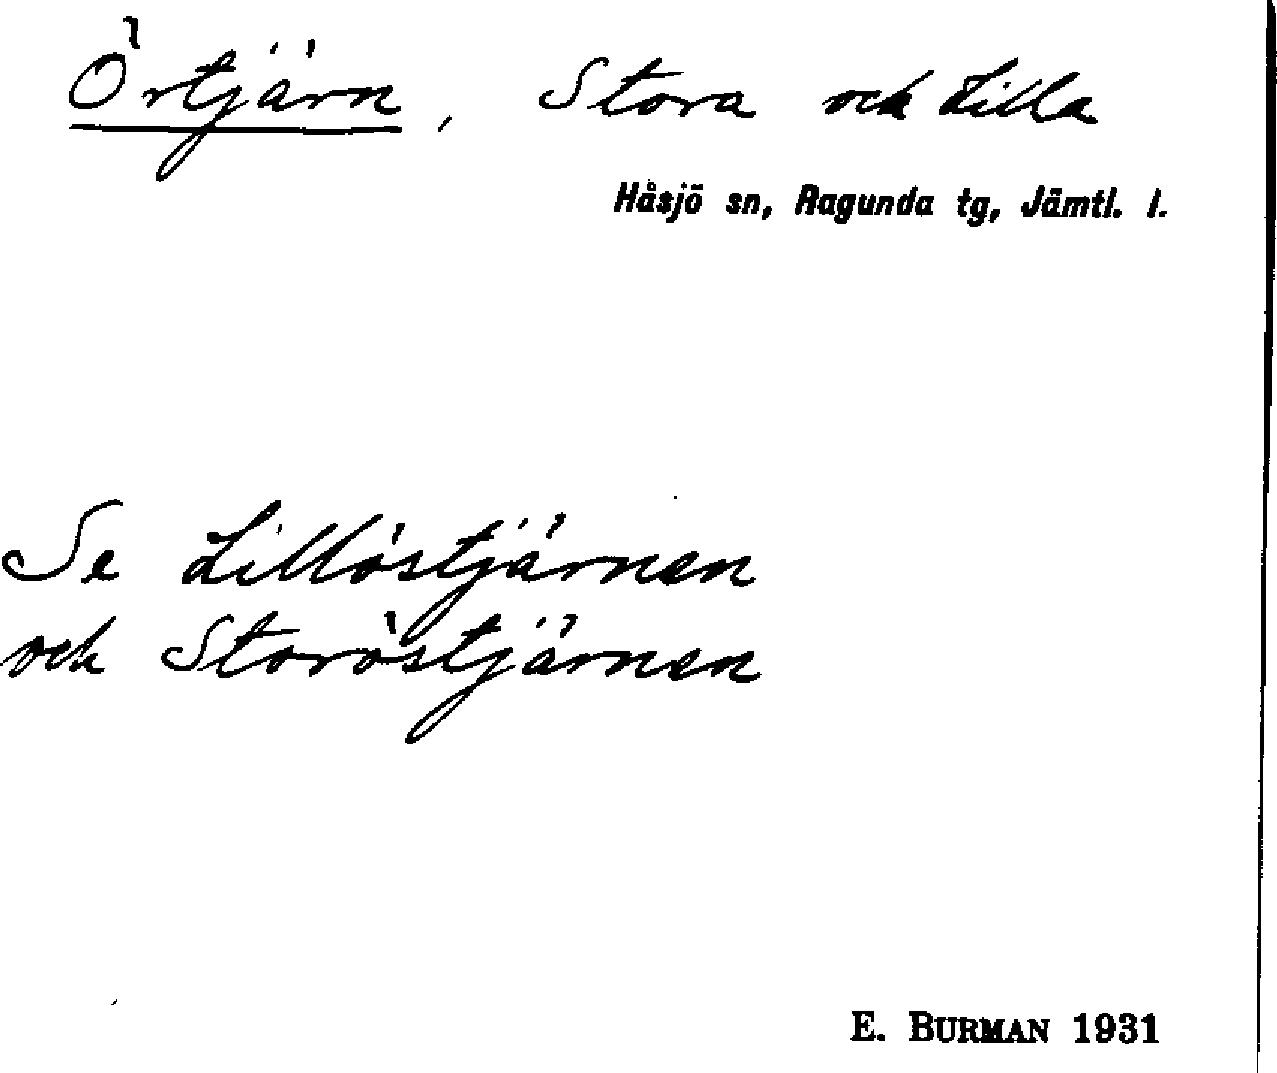 Örtjärn, Stora och Lilla
Håsjö sn, Ragunda tg, Jämtl. l.
Se Lillöstjärnen
och Storöstjärnen
E. BURMAN 1931